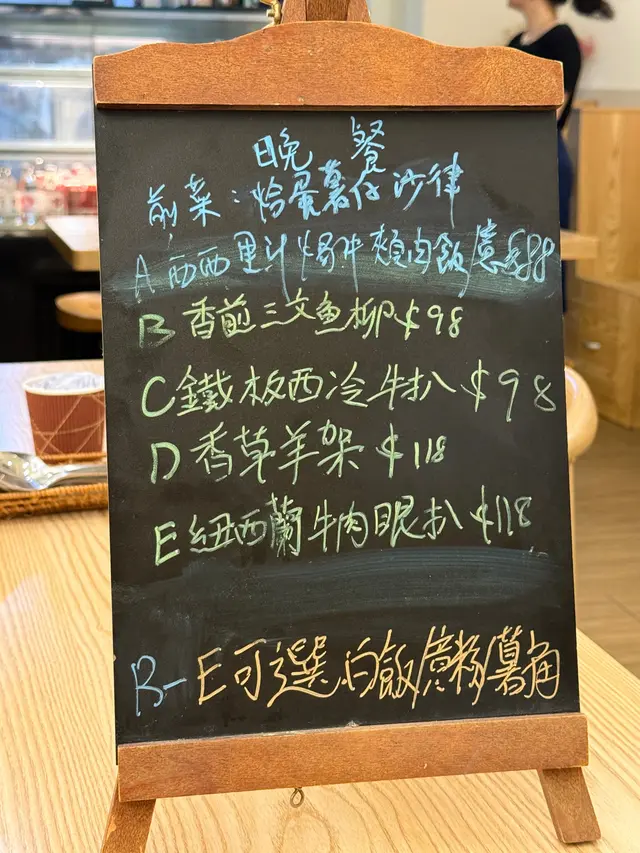 晚 餐
前菜：烚蛋薯仔沙律
A 西西里汁焗牛頰肉飯/意 $88
B 香煎三文魚柳 $98
C 鐵板西冷牛扒 $98
D 香草羊架 $118
E 紐西蘭牛肉眼扒 $118
B-E可選白飯/意粉/薯角